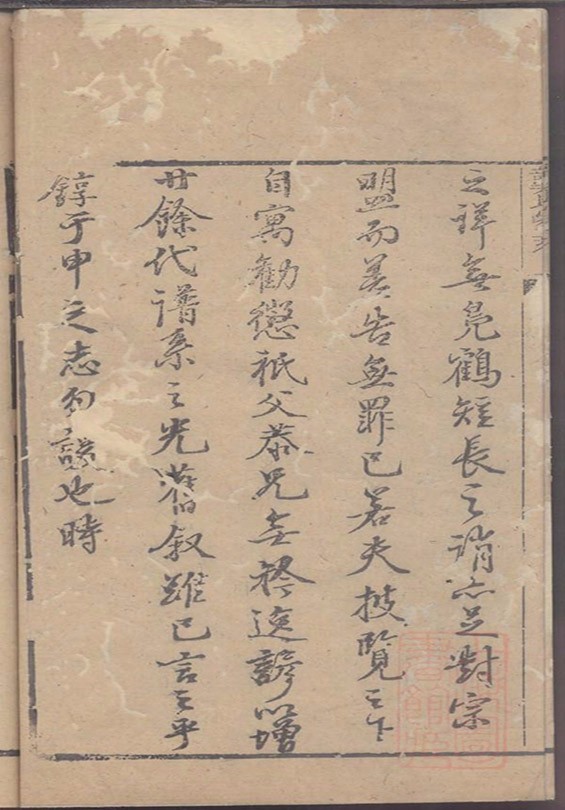 之詳無鳧鶴短長之誚亦足對宗
盟而善告無罪已若夫披覽之下
自寓勸懲祇父恭兄無務逸諺以增
廿餘代譜系之光舊叙雖已言之乎
錞于申之志勿諼也時